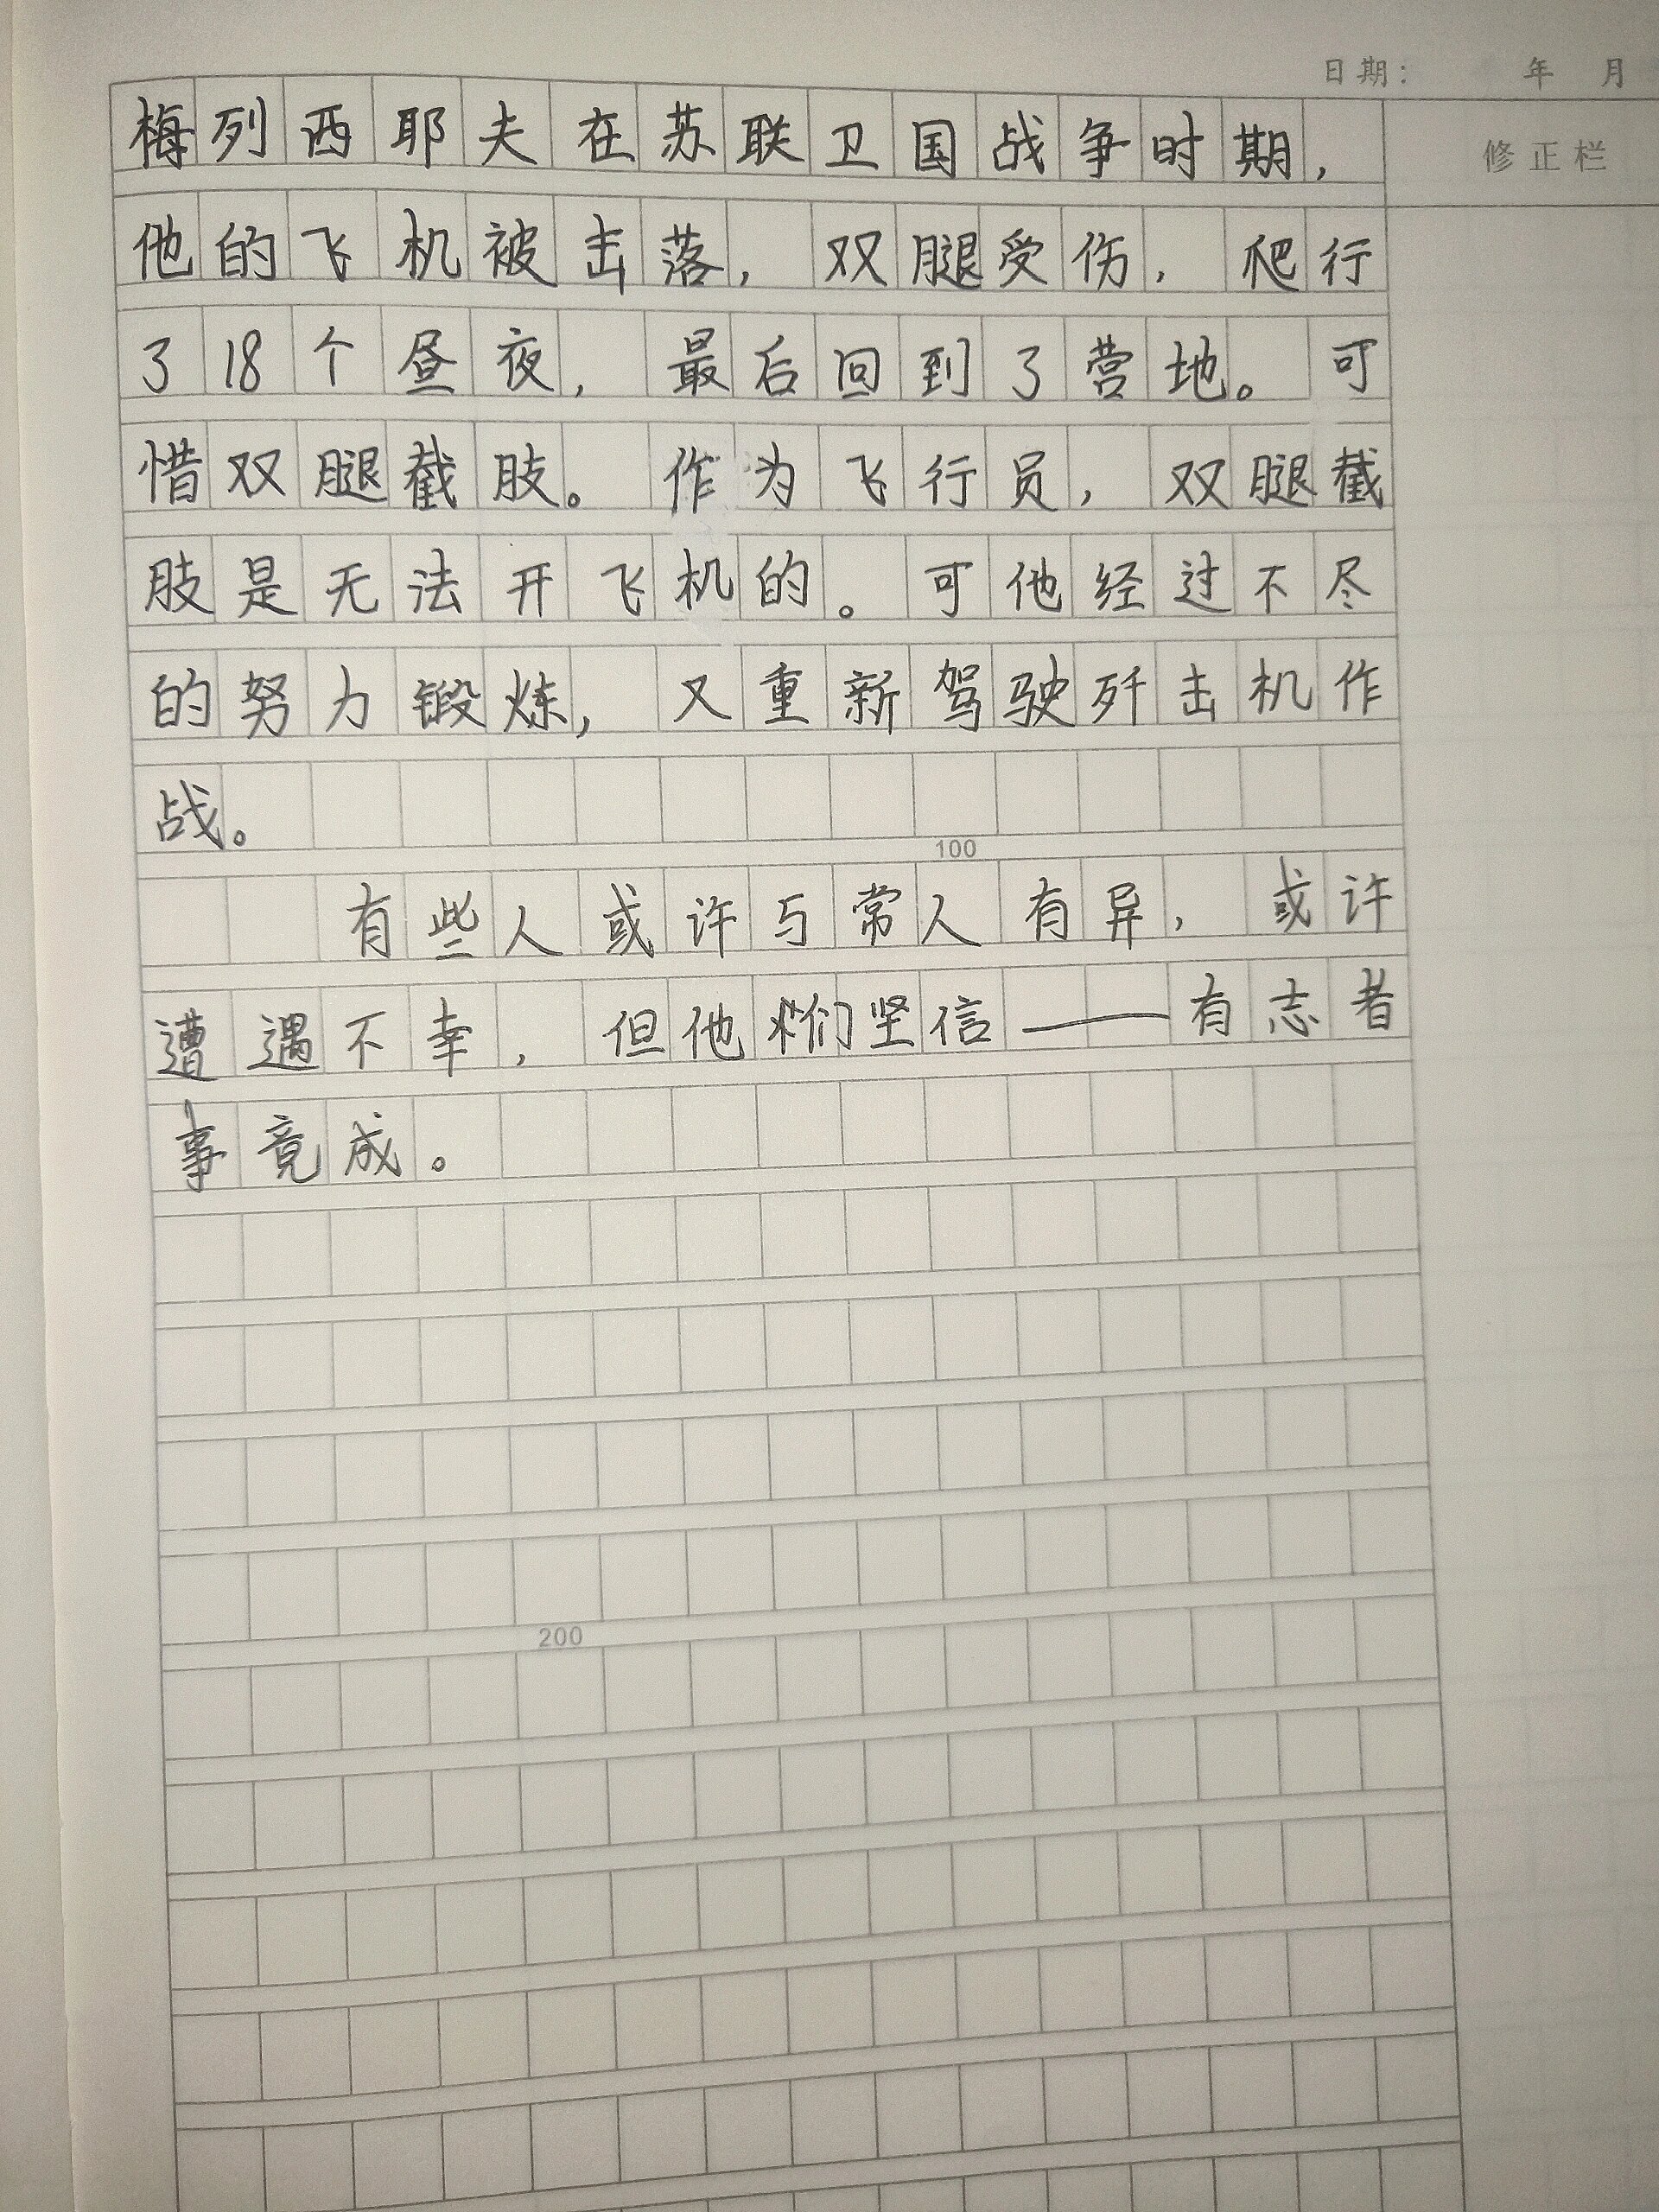 日期： 年 月
修正栏
梅列西耶夫在苏联卫国战争时期，
他的飞机被击落，双腿受伤，爬行
了18个昼夜，最后回到了营地。可
惜双腿截肢。作为飞行员，双腿截
肢是无法开飞机的。可他经过不尽
的努力锻炼，又重新驾驶歼击机作
战。
100
有些人或许与常人有异，或许
遭遇不幸，但他们坚信——有志者
事竟成。
200